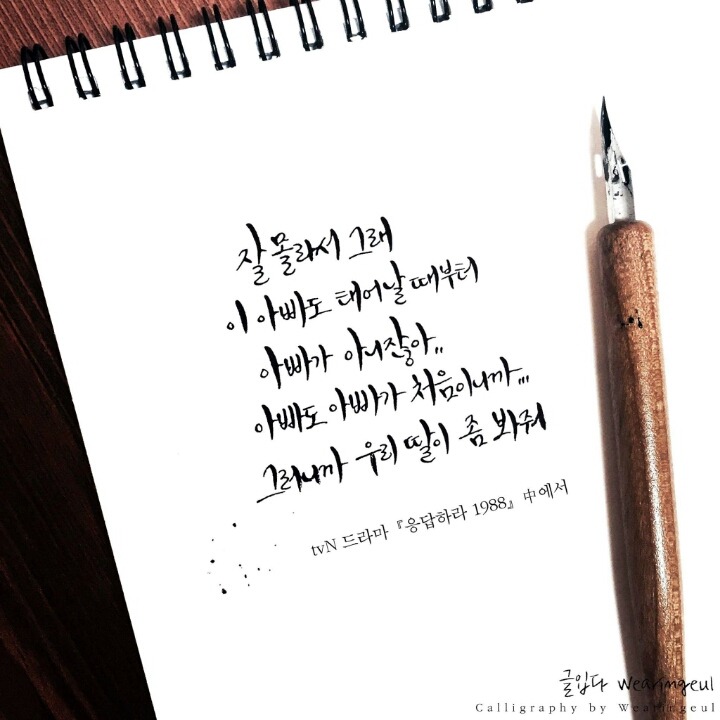 잘 몰라서 그래
이 아빠도 태어날 때부터
아빠가 아니잖아..
아빠도 아빠가 처음이니까...
그러니까 우리 딸이 좀 봐줘
tvN 드라마『응답하라 1988』中에서
글입다 Wearingeul
Calligraphy by Wearingeul